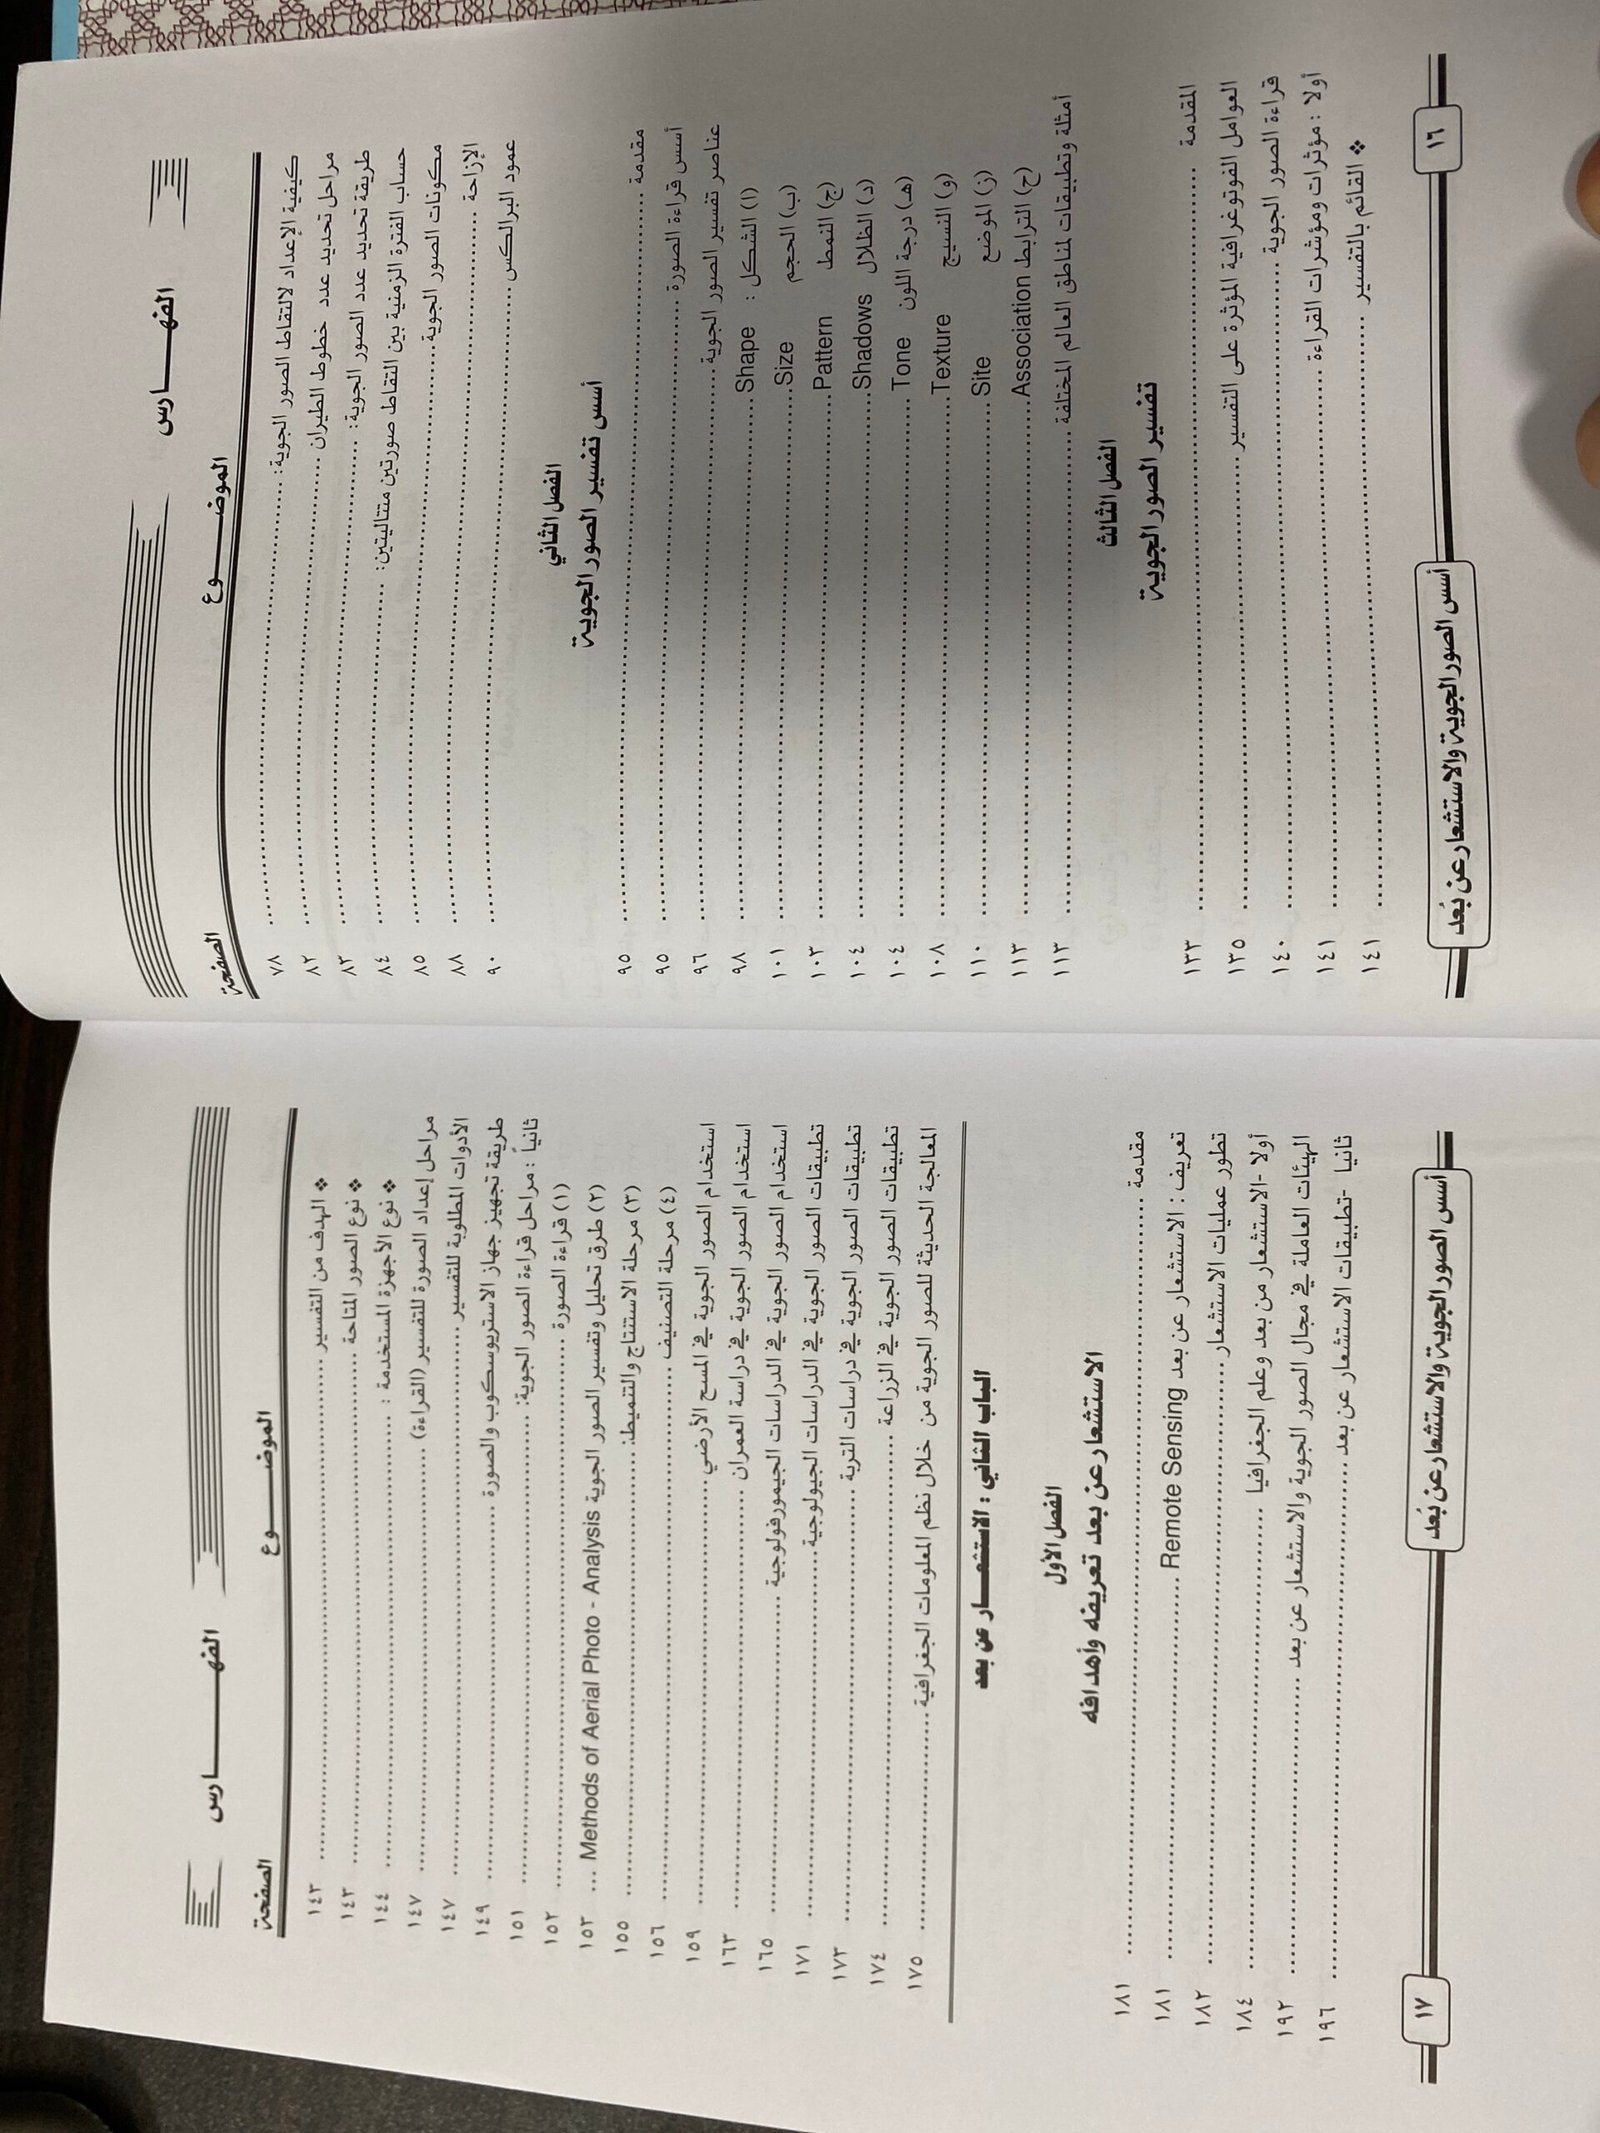 الفهـــــارس
الموضـــــوع الصفحة
كيفية الإعداد لالتقاط الصور الجوية: ٧٨
مراحل تحديد عدد خطوط الطيران ٨٢
طريقة تحديد عدد الصور الجوية: ٨٣
حساب الفترة الزمنية بين التقاط صورتين متتاليتين: ٨٤
مكونات الصور الجوية ٨٥
الإزاحة ٨٨
عمود البرالكس ٩٠
الفصل الثاني
أسس تفسير الصور الجوية
مقدمة ٩٥
أسس قراءة الصورة ٩٥
عناصر تفسير الصور الجوية ٩٦
(ا) الشكل : Shape ٩٨
(ب) الحجم Size ١٠١
(ج) النمط Pattern ١٠٣
(د) الظلال Shadows ١٠٤
(هـ) درجة اللون Tone ١٠٤
(و) النسيج Texture ١٠٨
(ز) الموضع Site ١١٠
(ح) الترابط Association ١١٣
أمثلة وتطبيقات لمناطق العالم المختلفة ١١٣
الفصل الثالث
تفسير الصور الجوية
المقدمة ١٣٣
العوامل الفوتوغرافية المؤثرة على التفسير ١٣٥
قراءة الصور الجوية ١٤٠
أولا : مؤثرات ومؤشرات القراءة ١٤١
❖ القائم بالتفسير ١٤١
١٦ أسس الصور الجوية والاستشعار عن بُعد
الفهـــــارس
الموضـــــوع الصفحة
❖ الهدف من التفسير ١٤٣
❖ نوع الصور المتاحة ١٤٣
❖ نوع الأجهزة المستخدمة : ١٤٤
مراحل إعداد الصورة للتفسير (القراءة) ١٤٧
الأدوات المطلوبة للتفسير ١٤٧
طريقة تجهيز جهاز الاستريوسكوب والصورة ١٤٩
ثانياً : مراحل قراءة الصور الجوية: ١٥١
(١) قراءة الصورة ١٥٢
(٢) طرق تحليل وتفسير الصور الجوية Methods of Aerial Photo - Analysis ١٥٣
(٣) مرحلة الاستنتاج والتنميط: ١٥٥
(٤) مرحلة التصنيف ١٥٦
استخدام الصور الجوية في المسح الأرضي ١٥٩
استخدام الصور الجوية في دراسة العمران ١٦٣
استخدام الصور الجوية في الدراسات الجيمورفولوجية ١٦٥
تطبيقات الصور الجوية في الدراسات الجيولوجية ١٧١
تطبيقات الصور الجوية في دراسات التربة ١٧٣
تطبيقات الصور الجوية في الزراعة ١٧٤
المعالجة الحديثة للصور الجوية من خلال نظم المعلومات الجغرافية ١٧٥
الباب الثاني : الاستشعـــار عن بعد
الفصل الأول
الاستشعار عن بعد تعريفه وأهدافه
مقدمة ١٨١
تعريف : الاستشعار عن بعد Remote Sensing ١٨١
تطور عمليات الاستشعار ١٨٢
أولا -الاستشعار من بعد وعلم الجغرافيا ١٨٤
الهيئات العاملة في مجال الصور الجوية والاستشعار عن بعد ١٩٢
ثانيا -تطبيقات الاستشعار عن بعد ١٩٦
أسس الصور الجوية والاستشعار عن بُعد ١٧